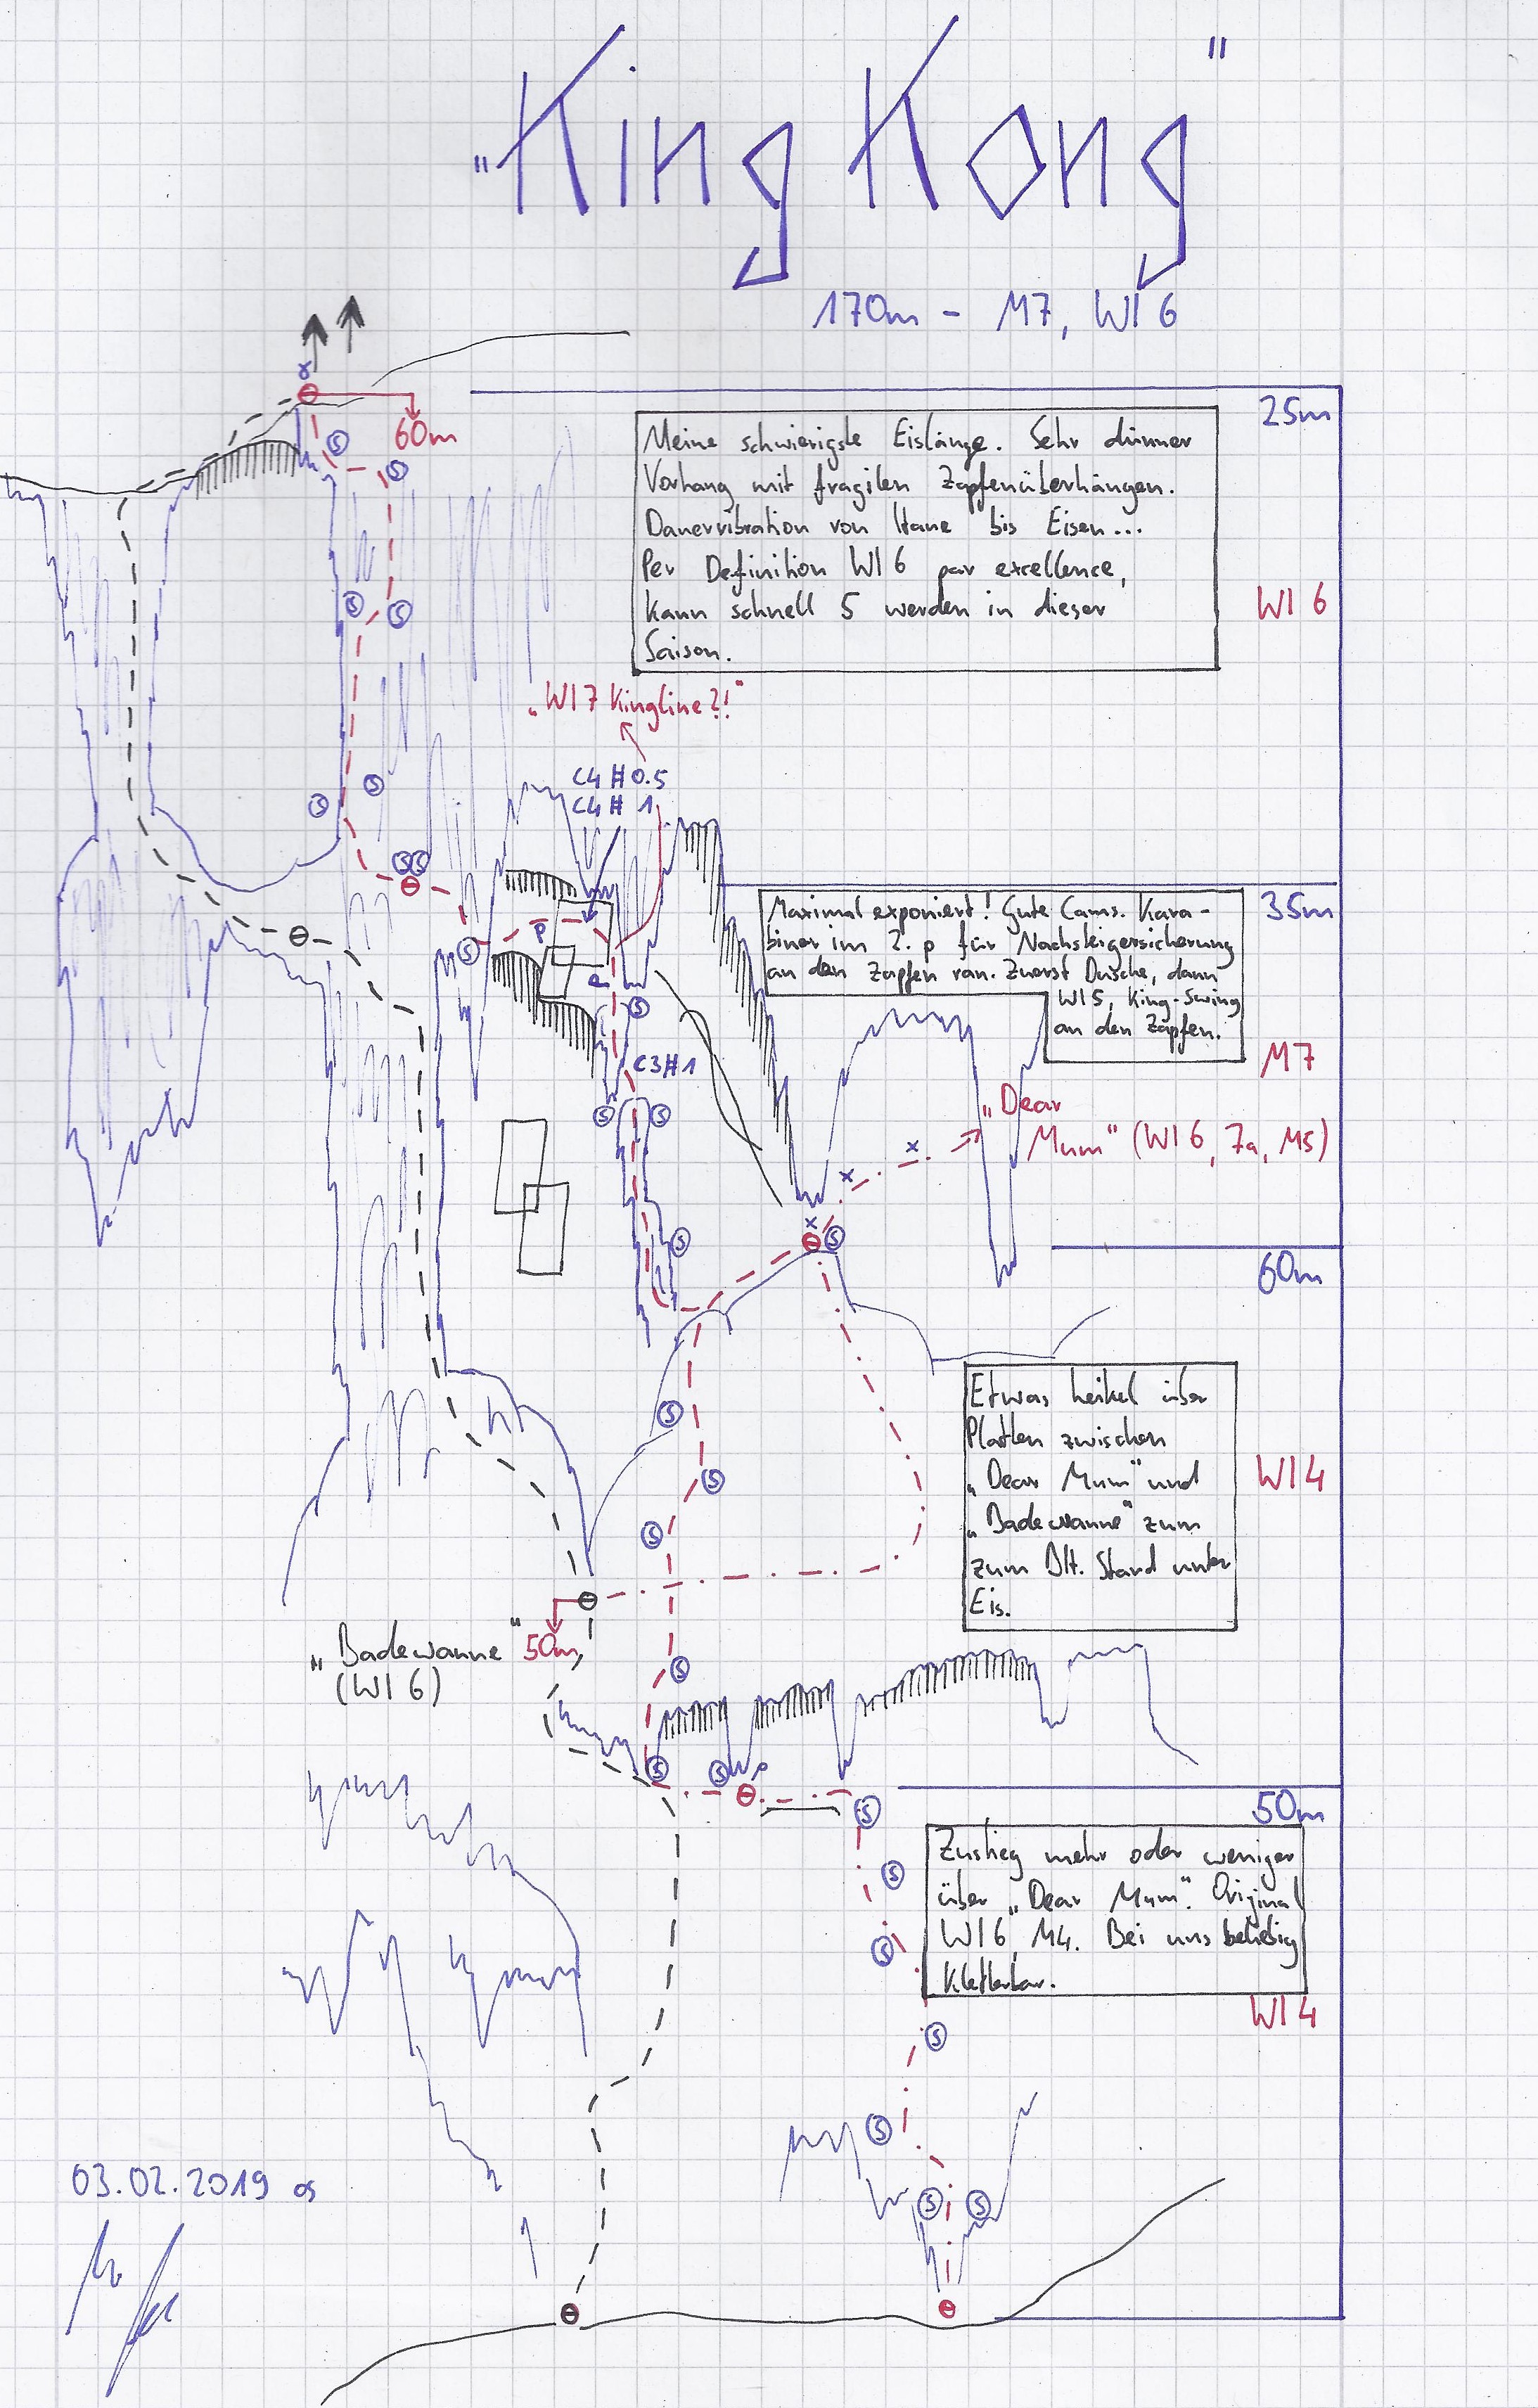 „King Kong"
170m - M7, WI 6
60m
25m
Meine schwierigste Eislänge. Sehr dünner
Vorhang mit fragilen Zapfenüberhängen.
Dauervibration von Haue bis Eisen...
Per Definition WI 6 par excellence,
kann schnell 5 werden in dieser
Saison.
WI 6
„WI7 Kingline?!"
C4 # 0.5
C4 # 1
35m
Maximal exponiert! Gute Cams. Kara-
biner im 2. p für Nachsteigersicherung
an den Zapfen ran. Zuerst Dusche, dann
WI5, King-Swing
an den Zapfen.
P
C3#1
M7
„Dear
Mum" (WI 6, 7a, M5)
60m
Etwas heikel über
Platten zwischen
„Dear Mum" und
„Badewanne" zum
zum Stand unter
Eis.
WI4
„Badewanne"
(WI 6)
50m
50m
Zustieg mehr oder weniger
über „Dear Mum". Original
WI6, M4. Bei uns beliebig
kletterbar.
WI4
03.02.2019